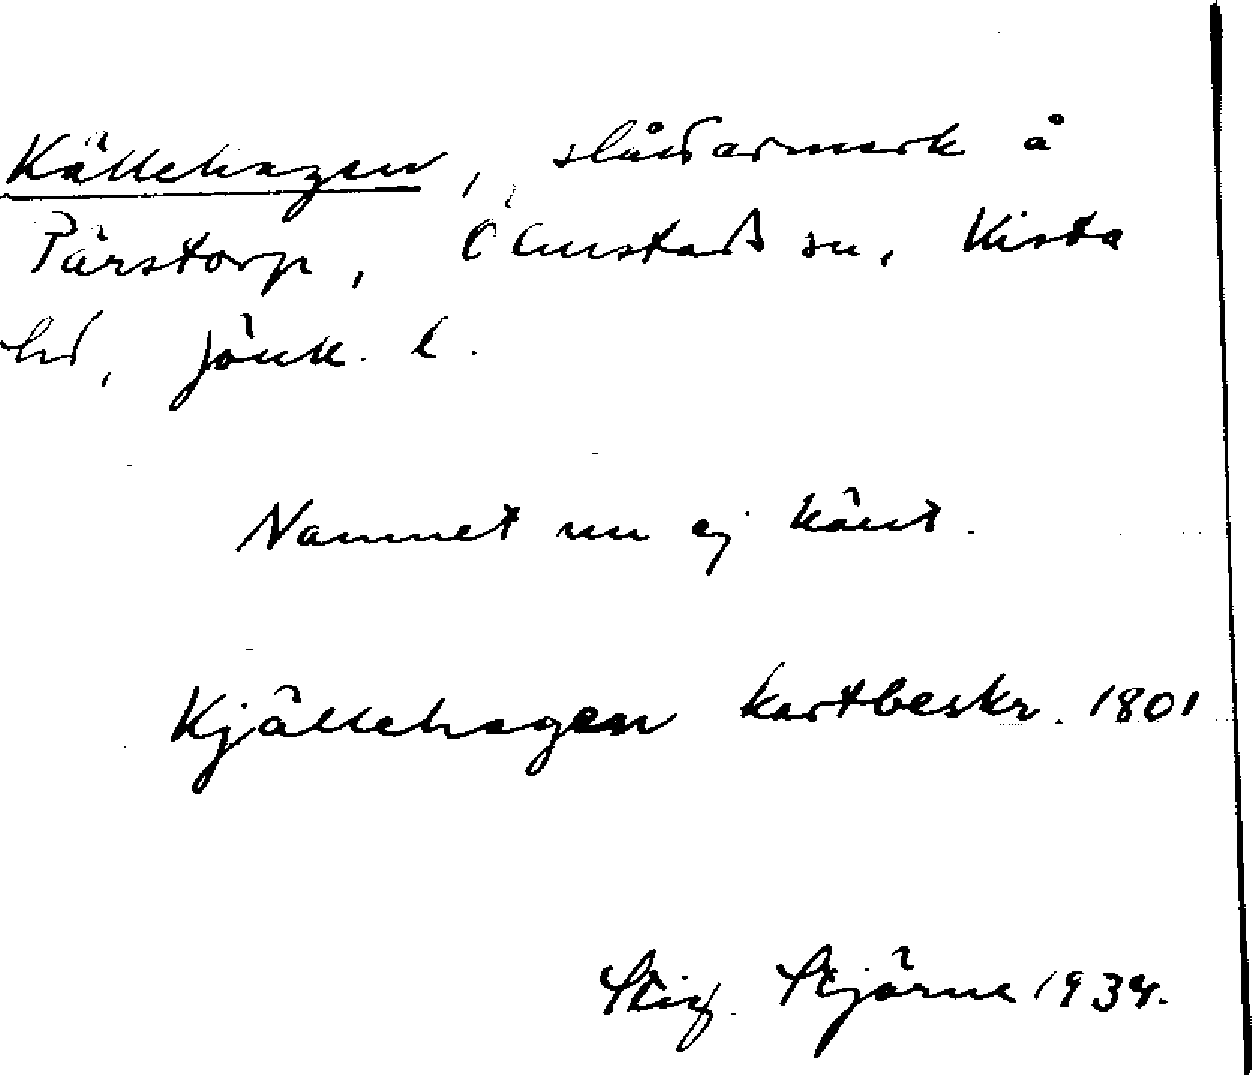 Källehagen, slåttermark å
Pärstorp, Ölmstad sn, Vista
hd, Jönk. l.
Namnet nu ej känt.
Kjällehagen kartbeskr. 1801
Stig Stjärne 1934.